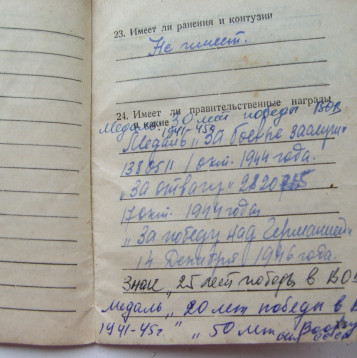 23. Имеет ли ранения и контузии
Не имеет.
24. Имеет ли правительственные награды
и какие
Медаль 30 лет победы ВОВ
1941-45г
Медаль "За боевые заслуги"
1 окт. 1944 года.
"За отвагу"
17 окт. 1944 года
"За победу над Германией"
14 декабря 1946 года.
Знак "25 лет победы в ВОВ
Медаль "20 лет победы в В
1941-45г." "50 лет